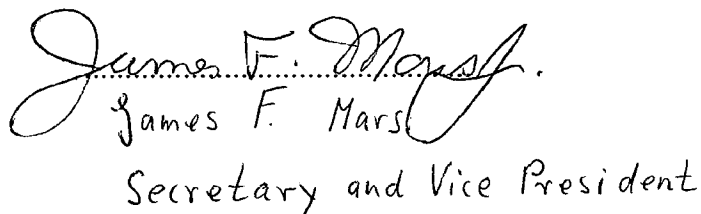 James F. Mars Jr.
James F. Mars
Secretary and Vice President